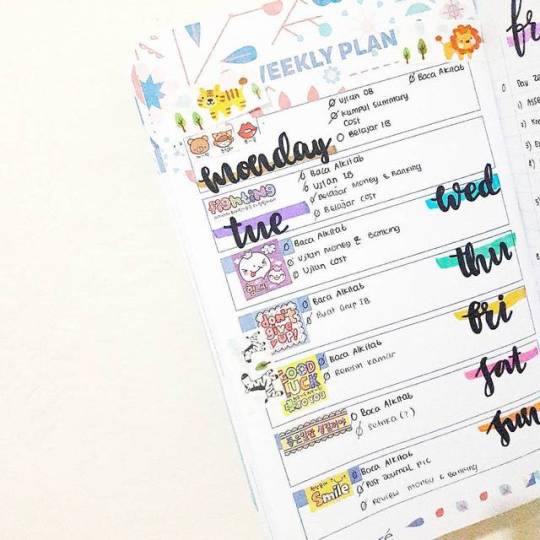 WEEKLY PLAN
Baca Alkitab
Ujian OB
Kumpul Summary
Cost
Belajar IB
monday
Baca Alkitab
Ujian IB
Belajar Money & Banking
Belajar Cost
fighting
tue
wed
Baca Alkitab
Ujian Money & Banking
Ujian Cost
thu
Baca Alkitab
Buat Grup IB
don't
give
up!
fri
Baca Alkitab
Beresin Kamar
GOOD
LUCK
TO YOU
sat
Baca Alkitab
Setrika (?)
sun
Baca Alkitab
Post Journal Pic
Review Money & Banking
Smile